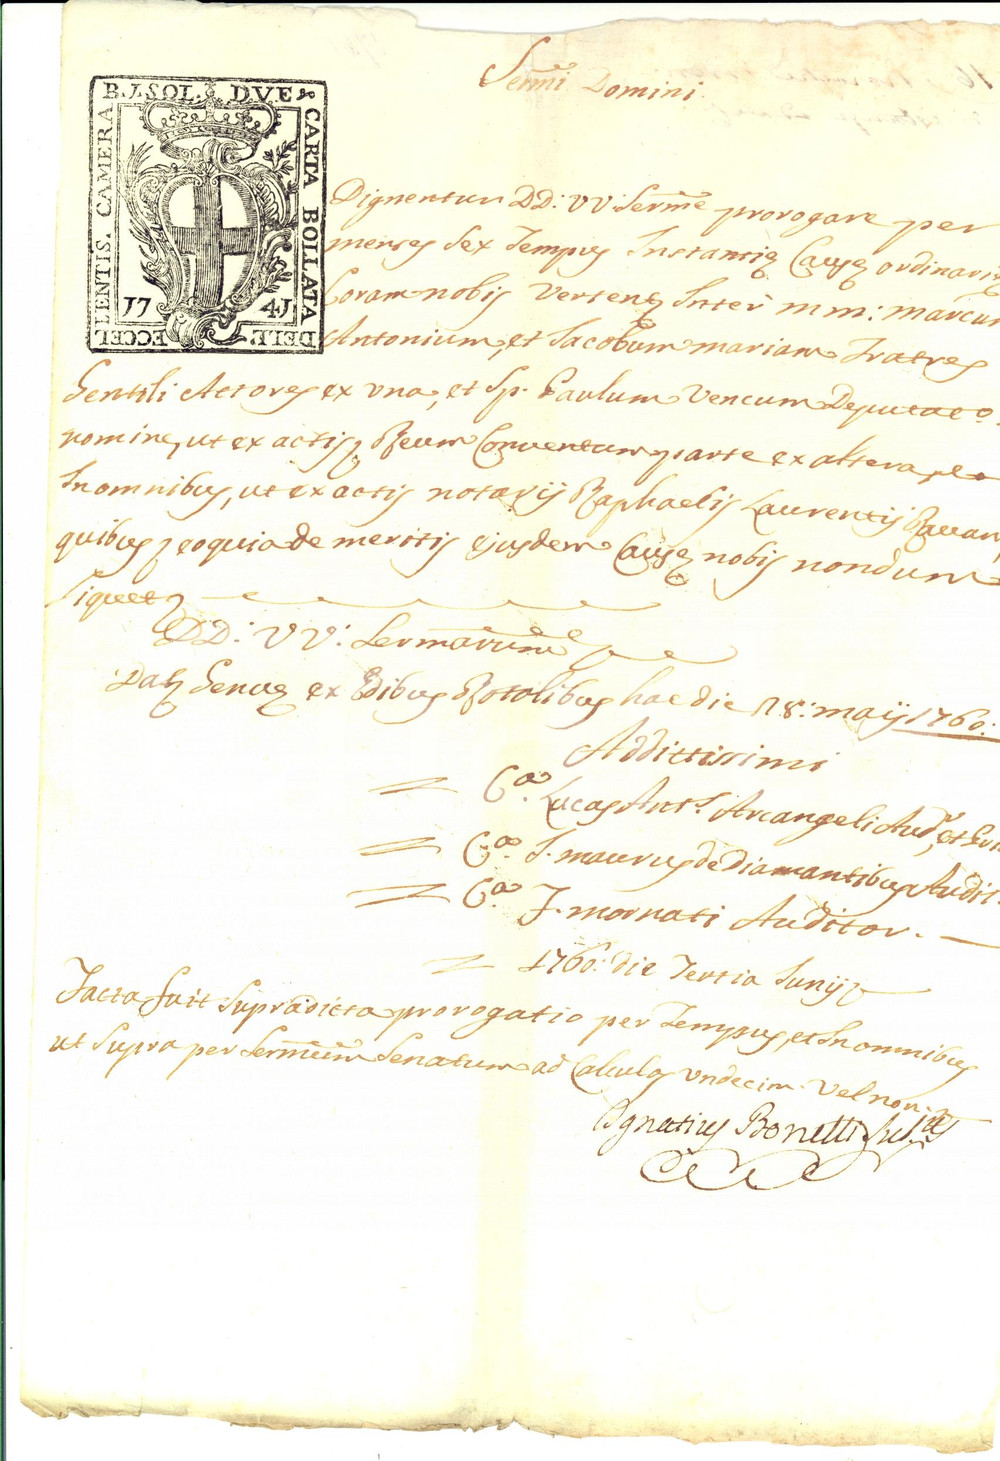 Ser.mi Domini
B. 1 SOL. DVE
CARTA BOLLATA
DELL'
ECCEL
LENTIS. CAMERA
1741
Dignentur DD: VV: Serme prorogare per
menses sex Tempus Instantię Causę ordinarię
Coram nobis Vertentę Inter m.m: marcum
Antonium, et Jacobum mariam Fratres
Gentili Actores ex una, et Sp. Paulum Vencum Deputato
nomine, ut ex actis, Reum Conventum parte ex altera,
In omnibus, ut ex actis notarij Raphaelis Laurentij
quibus, eo quia de meritis ejusdem Causę nobis nondum
liquet
DD: VV: Sermarum
Dat. Genuę ex Ędibus Rotalibus hac die 28: maij 1760:
Addictissimi
Lucas Ant.s Arcangeli Aud.r, et
J. maurus de Diamantibus Audit.
J. mornati Auditor.
1760: die Tertia Junij
Facta fuit Supradicta prorogatio per Tempus, et In omnibus
ut Supra per Sermum Senatum ad Calculos Undecim.
Ignatius Bonelli